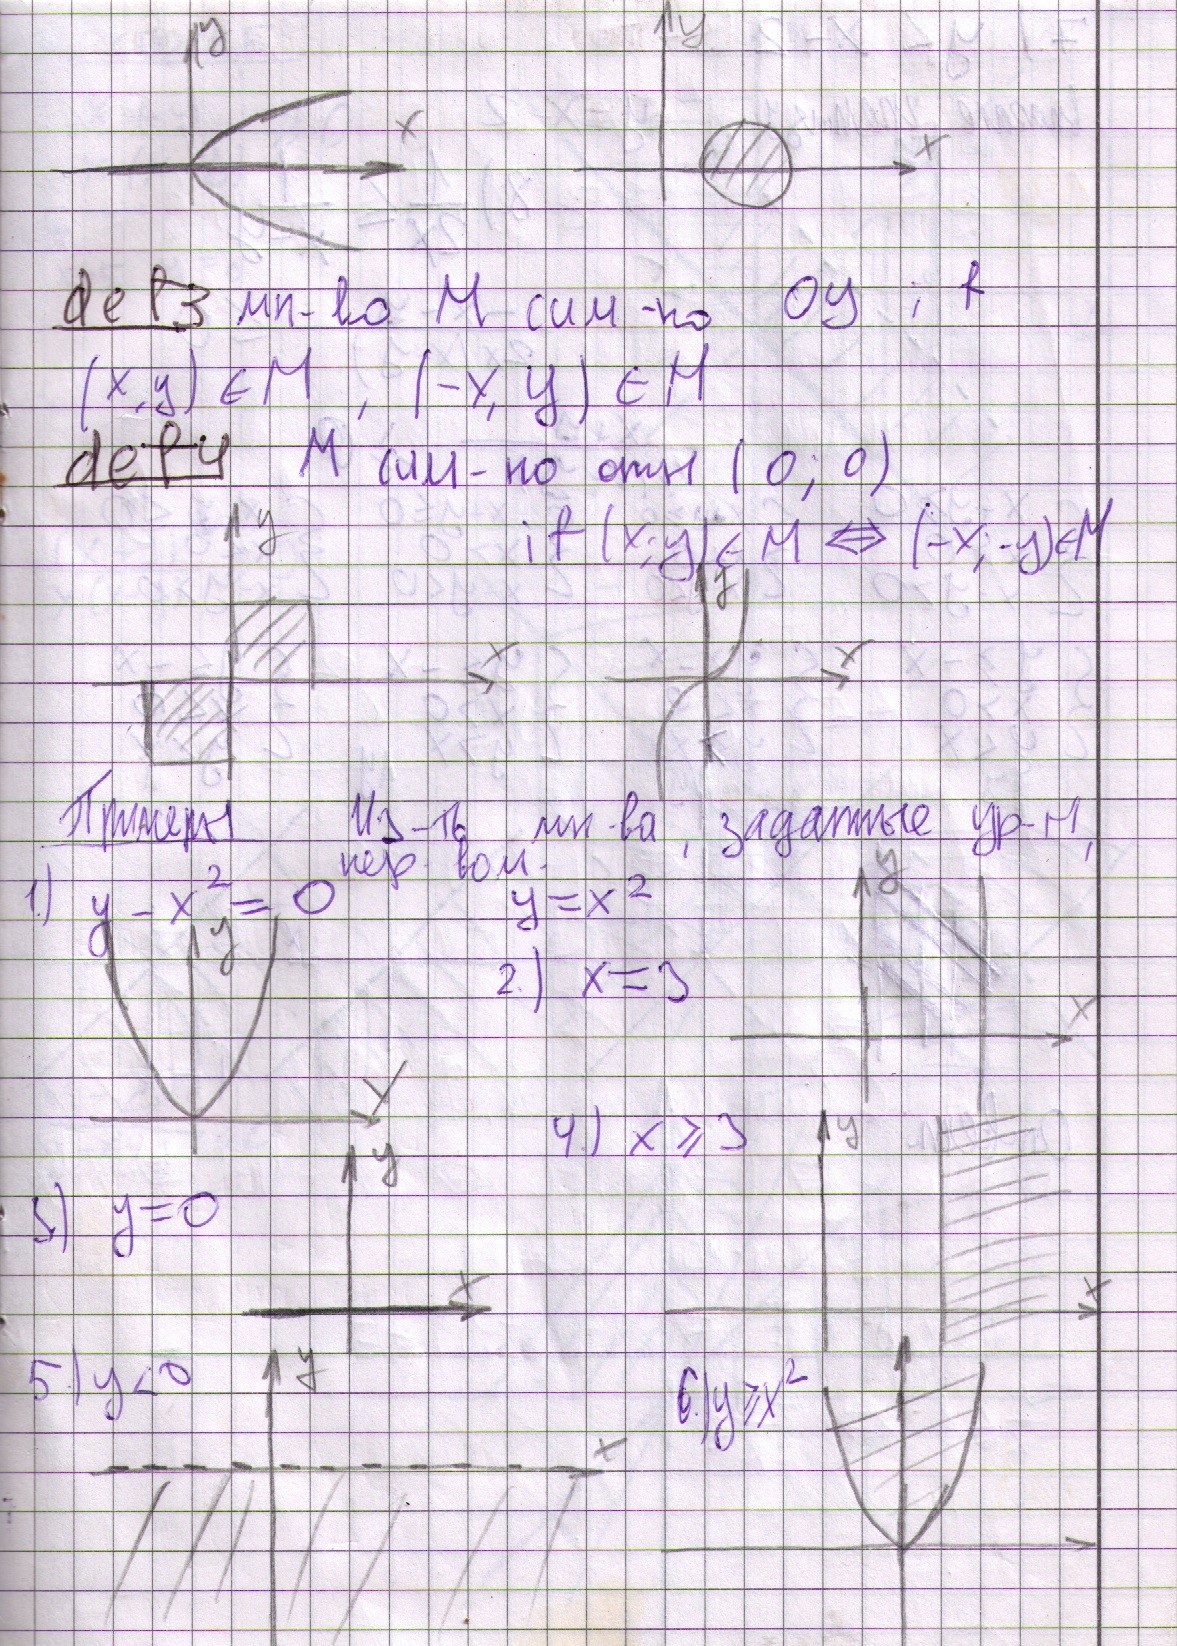 y y
x x
def3 мн-во М сим-но ОУ if
(x,y) ∈ M , (-x, y) ∈ M
def4 М сим-но отн (0; 0)
y if (x;y) ∈ M ⇔ (-x;-y)∈M
y
x x
Примеры Из-ть мн-ва, заданные ур-м,
нер-вом.
y
1.) y - x² = 0 y = x²
y
2.) x = 3
x
x
4.) x ⩾ 3 y
y
3) y = 0
x x
5.) y < 0 y
6.) y ⩾ x²
x